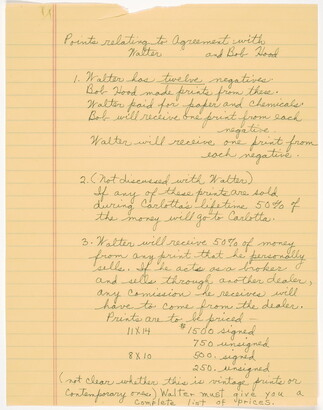 Points relating to Agreement with
Walter and Bob Hood
1. Walter has twelve negatives
Bob Hood made prints from these.
Walter paid for paper and chemicals.
Bob will receive one print from each
negative
Walter will receive one print from
each negative.
2. (Not discussed with Walter)
If any of these prints are sold
during Carlotta's lifetime 50% of
the money will go to Carlotta.
3. Walter will receive 50% of money
from any print that he personally
sells. If he acts as a broker
and sells through another dealer,
any comission he receives will
have to come from the dealer.
Prints are to be priced -
11X14 $1500 signed
750 unsigned
8X10 500. signed
250. unsigned
(not clear whether this is vintage prints or
Contemporary ones) Walter must give you a
complete list of prices.